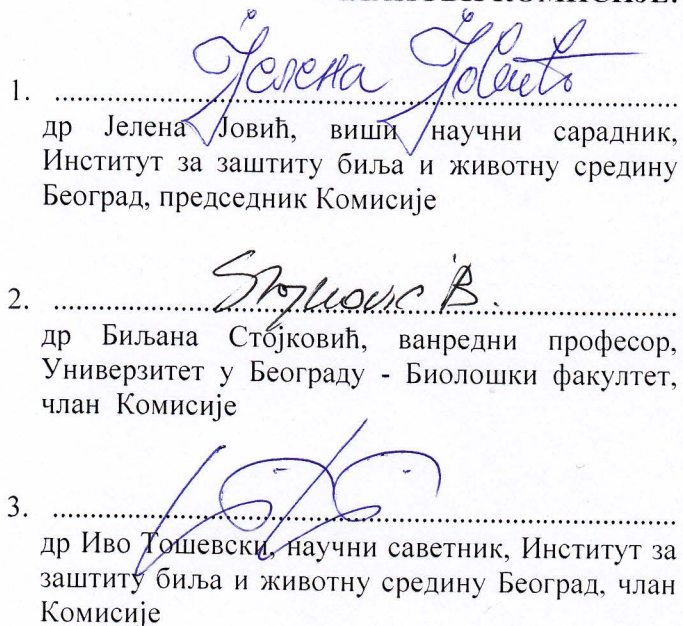 КОМИСИЈЕ:
Јелена Јовић
1. ........................................................................
др Јелена Јовић, виши научни сарадник,
Институт за заштиту биља и животну средину
Београд, председник Комисије
Stojković B.
2. ........................................................................
др Биљана Стојковић, ванредни професор,
Универзитет у Београду - Биолошки факултет,
члан Комисије
3. ........................................................................
др Иво Тошевски, научни саветник, Институт за
заштиту биља и животну средину Београд, члан
Комисије